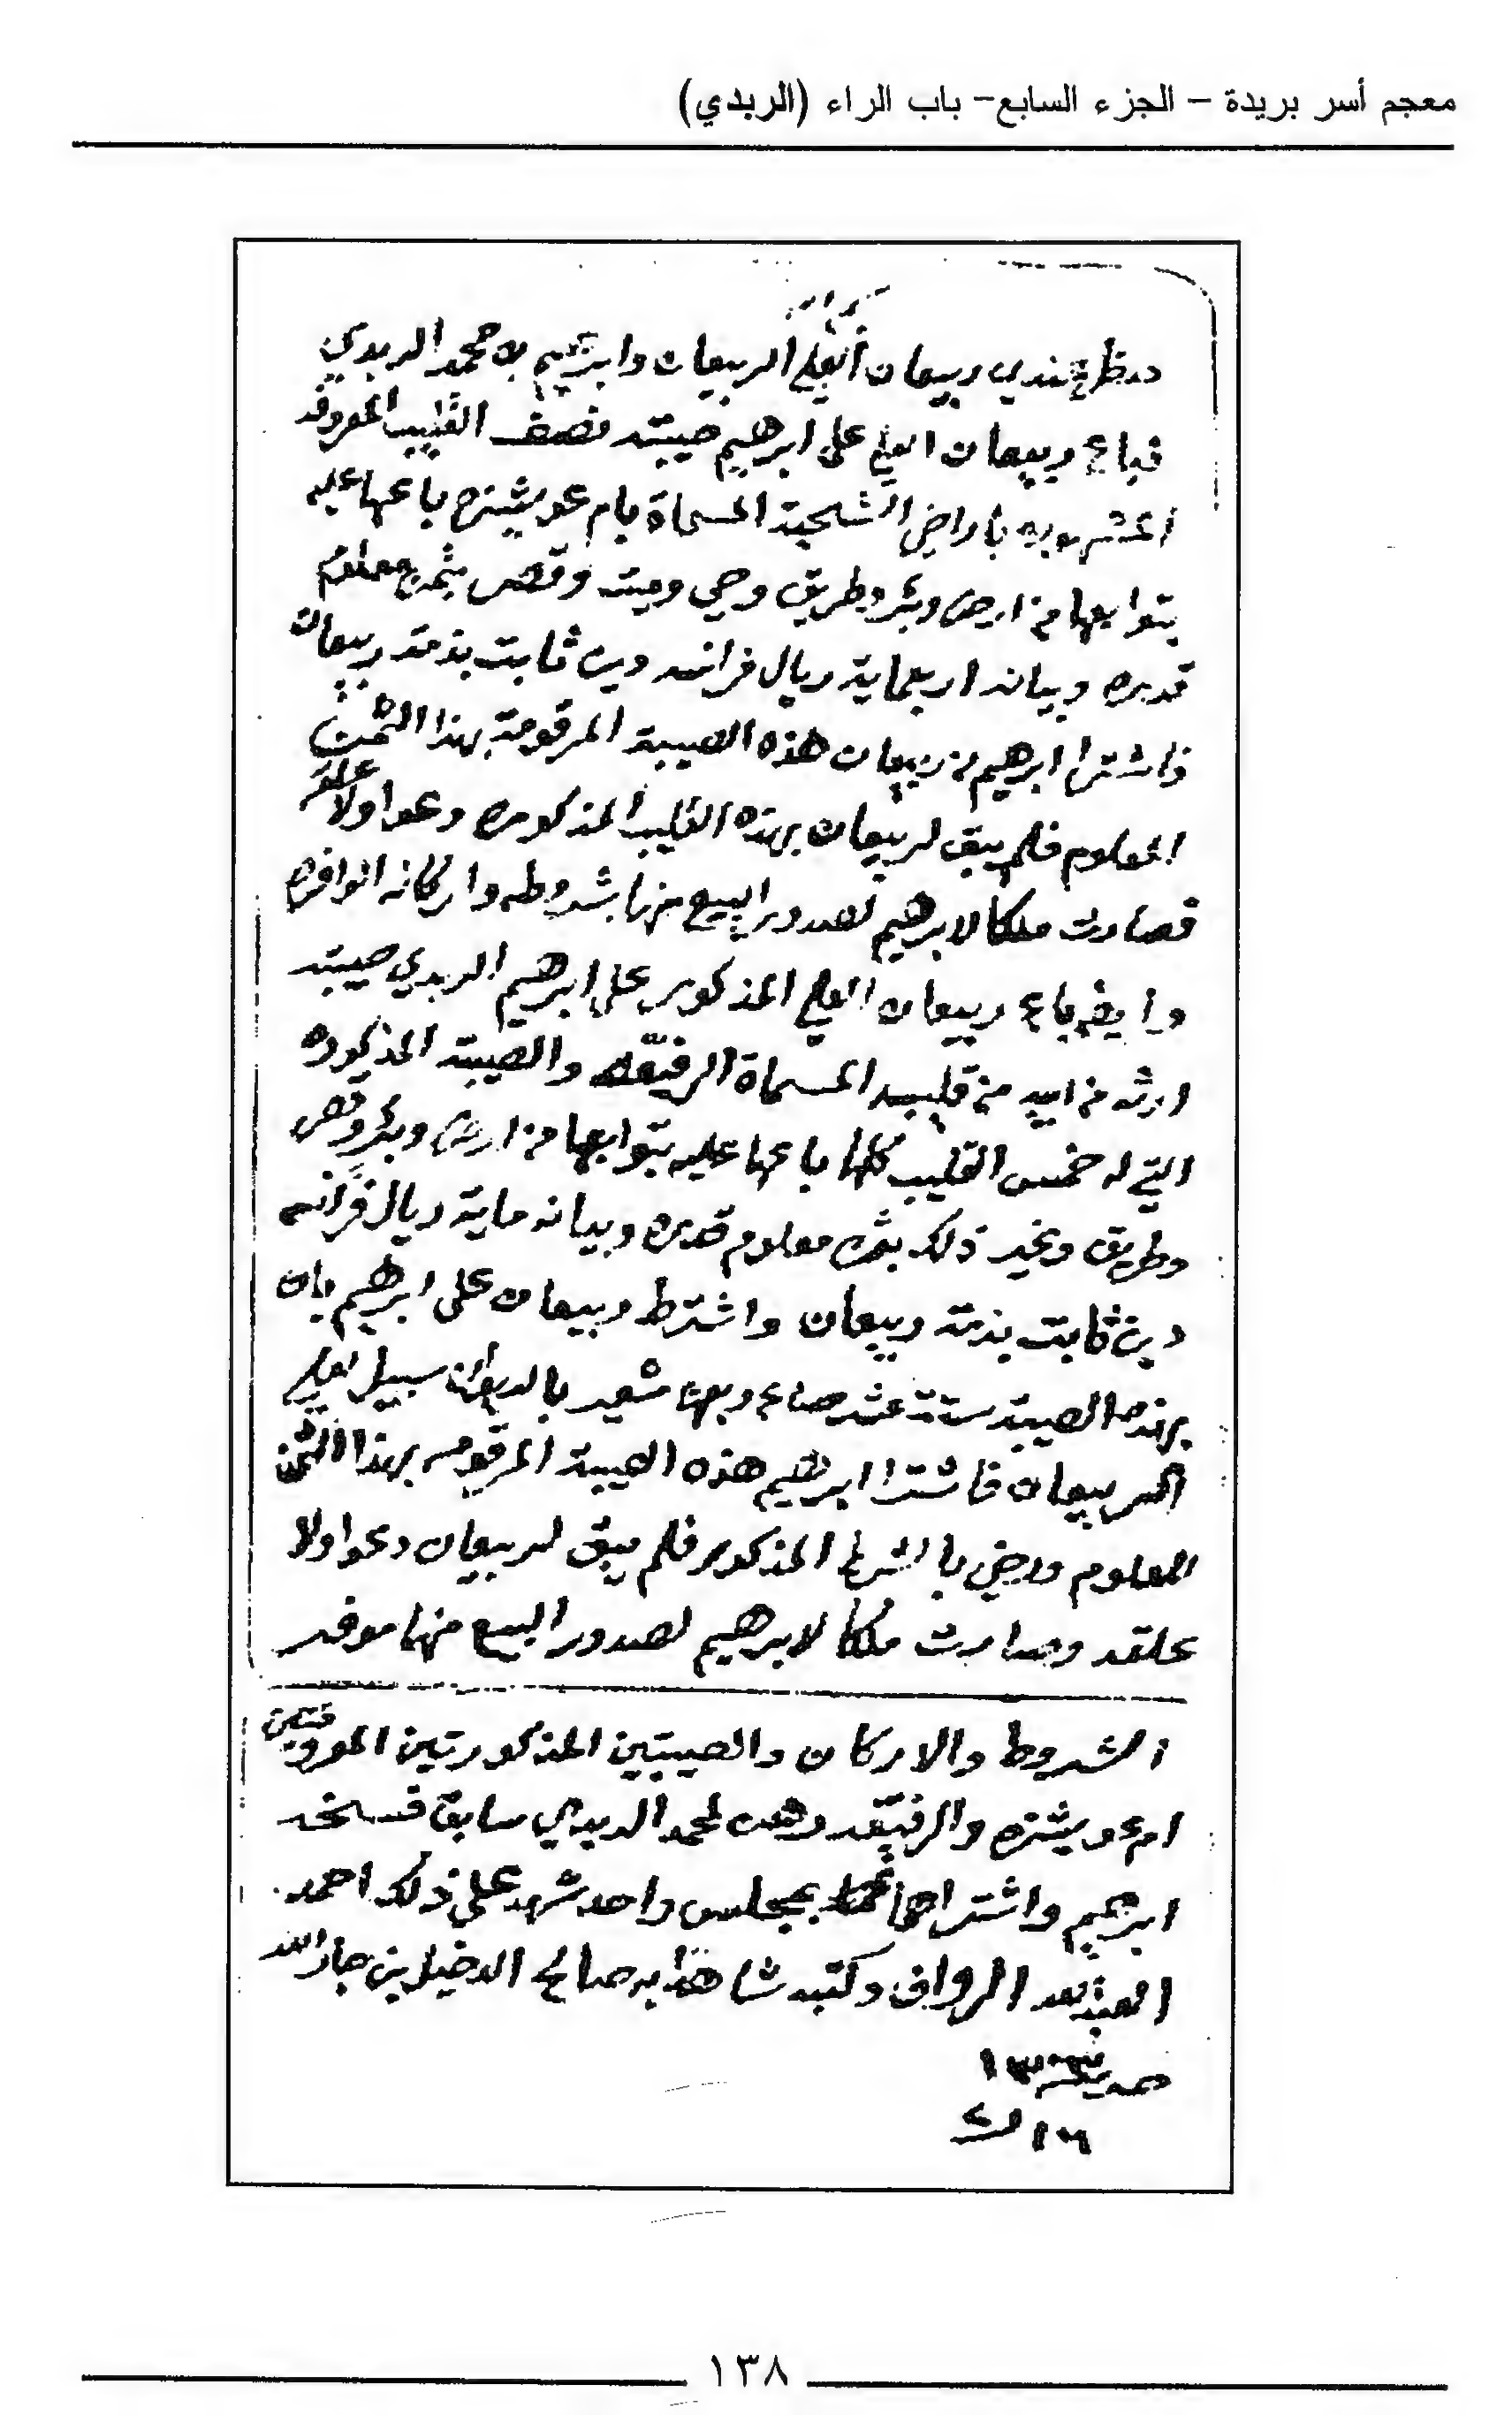 معجم أسر بريدة – الجزء السابع– باب الراء (الربدي)
حظر عندي ربيعان العلي الربيعان وابرهيم بن محمد الربدي
فباع ربيعان العلي على ابرهيم صيبته نصف القليب المعروفه
باراضي الشلحية المسماة بام عويشزه باعها عليه
بتوابعها من ارض وبئر وطريق وحي وميت وقصر بثمن معلوم
قدره وبيانه اربعماية ريال فرانسه دين ثابت بذمة ربيعان
فاشترا ابرهيم من ربيعان هذه الصيبة المرقومة بهذا الثمن
المعلوم فلم يبق لربيعان بهذه القليب المذكوره دعوا ولا علقه
فصارت ملكا لابرهيم لصدور البيع منها بشروطه واركانه الوافره
وايضا باع ربيعان العلي المذكور على ابرهيم الربدي صيبته
ارثه من ابيه من قليب المسماة الرفيقه والصيبة المذكوره
التي له خمس القليب كلها باعها عليه بتوابعها من ارض وبئر وقصر
وطريق وغير ذلك بثمن معلوم قدره وبيانه ماية ريال فرانسه
دين ثابت بذمة ربيعان واشترط ربيعان على ابرهيم بان
بهذه الصيبة ستة عشر صاع شعير سبيل لعلي
الربيعان فاشترا ابرهيم هذه الصيبة المرقومه بهذا الثمن
المعلوم ورضي بالشرط المذكور فلم يبق لربيعان دعوا ولا
علقه وصارت ملكا لابرهيم لصدور البيع منها موفر
الشروط والاركان والصيبتين المذكورتين المعروفتين
ام عويشزه والرفيقه رهن لمحمد الربدي سابق فسخه
ابرهيم واشتراهما بمجلس واحد شهد على ذلك احمد
العبدالله الرواف وكتبه شاهدا به صالح الدخيل بن جارالله
١٦
١٣٨